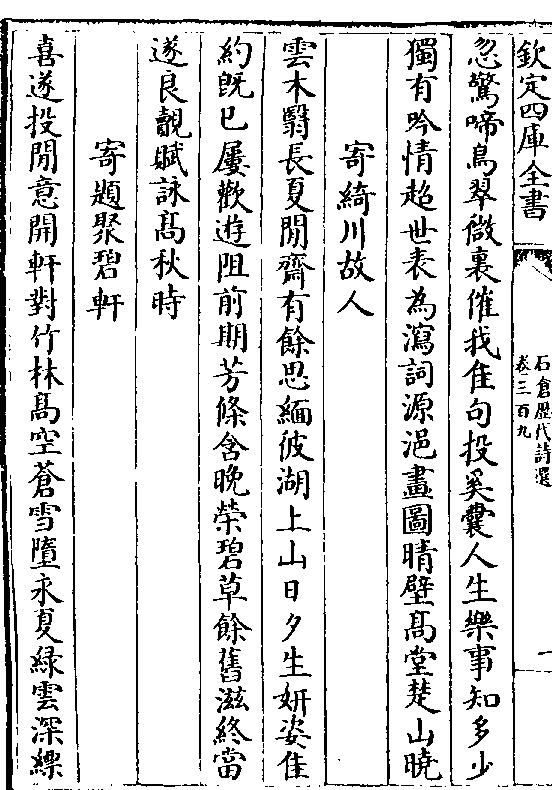 欽定四庫全書
石倉歷代詩選
卷三百九
忽驚啼鳥翠微裏催我佳句投奚囊人生樂事知多少
獨有吟情超世表為瀉詞源浥畫圖晴壁高堂楚山曉
寄綺川故人
雲木翳長夏閒齋有餘思緬彼湖上山日夕生妍姿佳
約既已屢歡遊阻前期芳條含晚榮碧草餘舊滋終當
遂良覿賦詠高秋時
寄題聚碧軒
喜遂投閒意開軒對竹林高空蒼雪墮永夏綠雲深縹